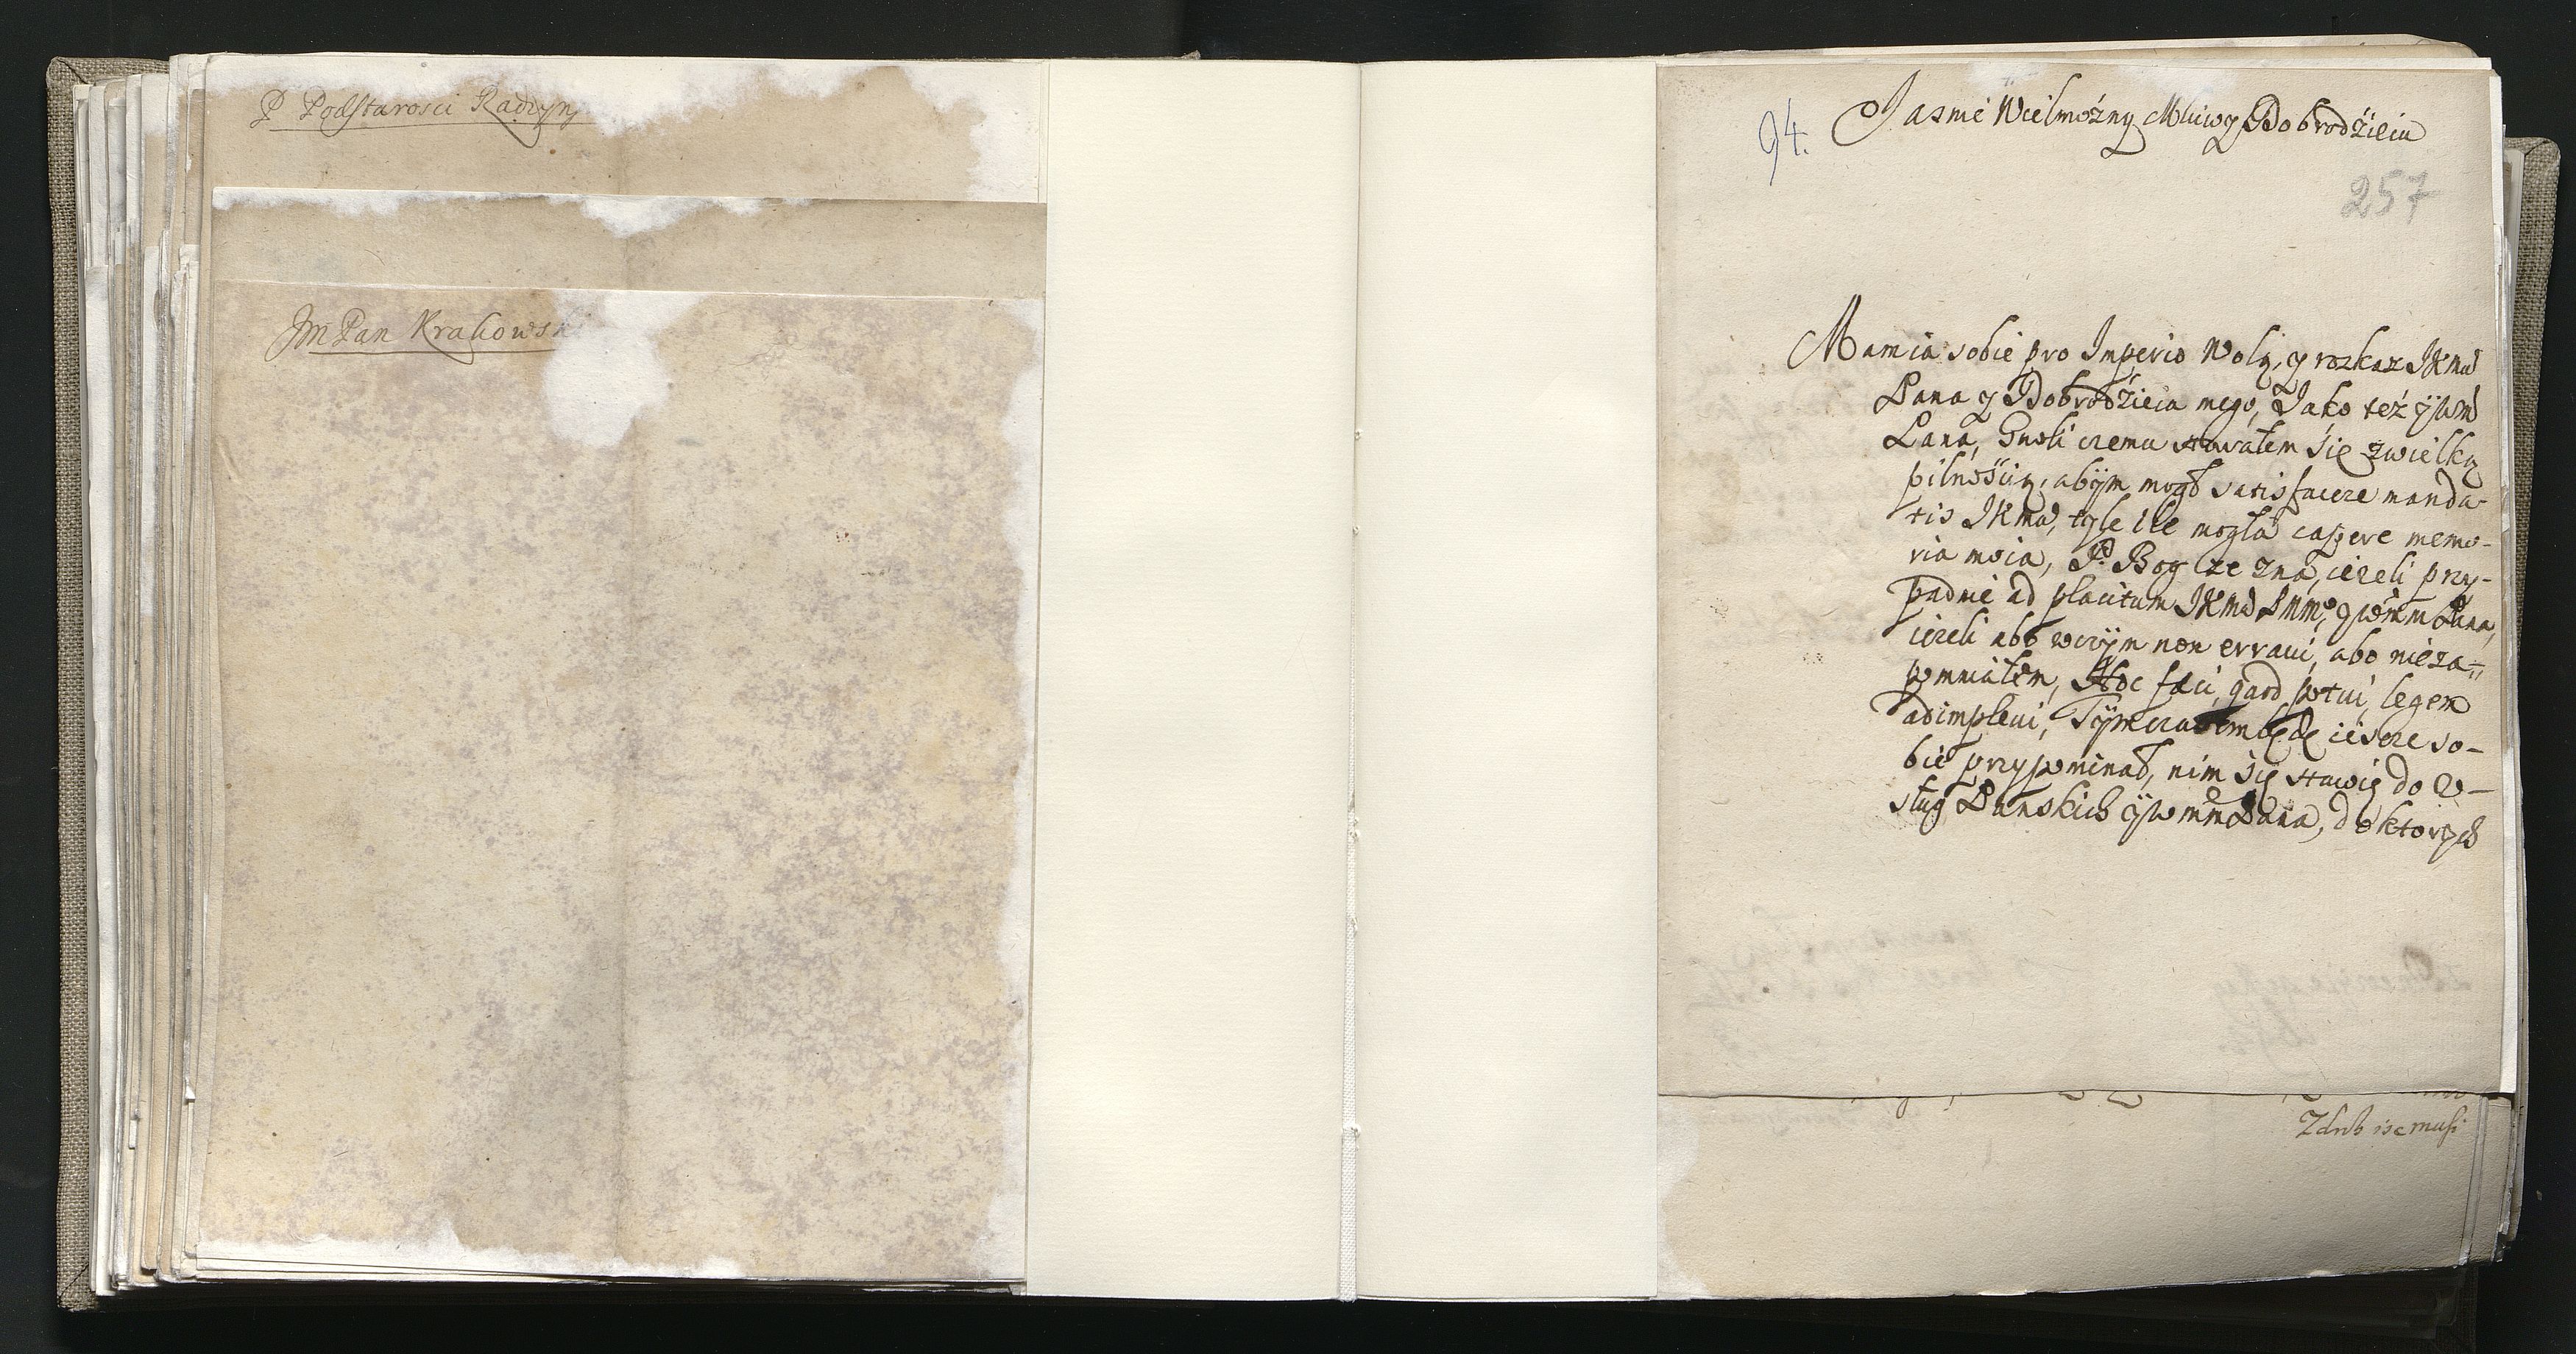 P Podstarosci Radzyn
JM Pan Krakowsk
94.
Jasnie Wielmożny Mściwy Dobrodźieiu
257
Mam ia sobie pro Imperio Wolą, y rozkaz JKmci
Pana y Dobrodźieia mego, Jako też
Pana, Gwoli czemu starałem się zwielką
pilnośćią, abÿm mogł satisfacere manda-
tis JKmci, tyle ile mogła capere memo-
ria moia, P. Bog że zna, iezeli przy-
padnie ad placitum JKmci Pana,
iezeli abo wczÿm non erraui, abo nieza-
pomniałem, Hoc feci, quod potui, legem
adimpleui, Tÿmczasem będę ieszcze so-
bie przypominał, nim się stawię do V-
sług Panskich Pana, do ktorych
Zdrob ise musi